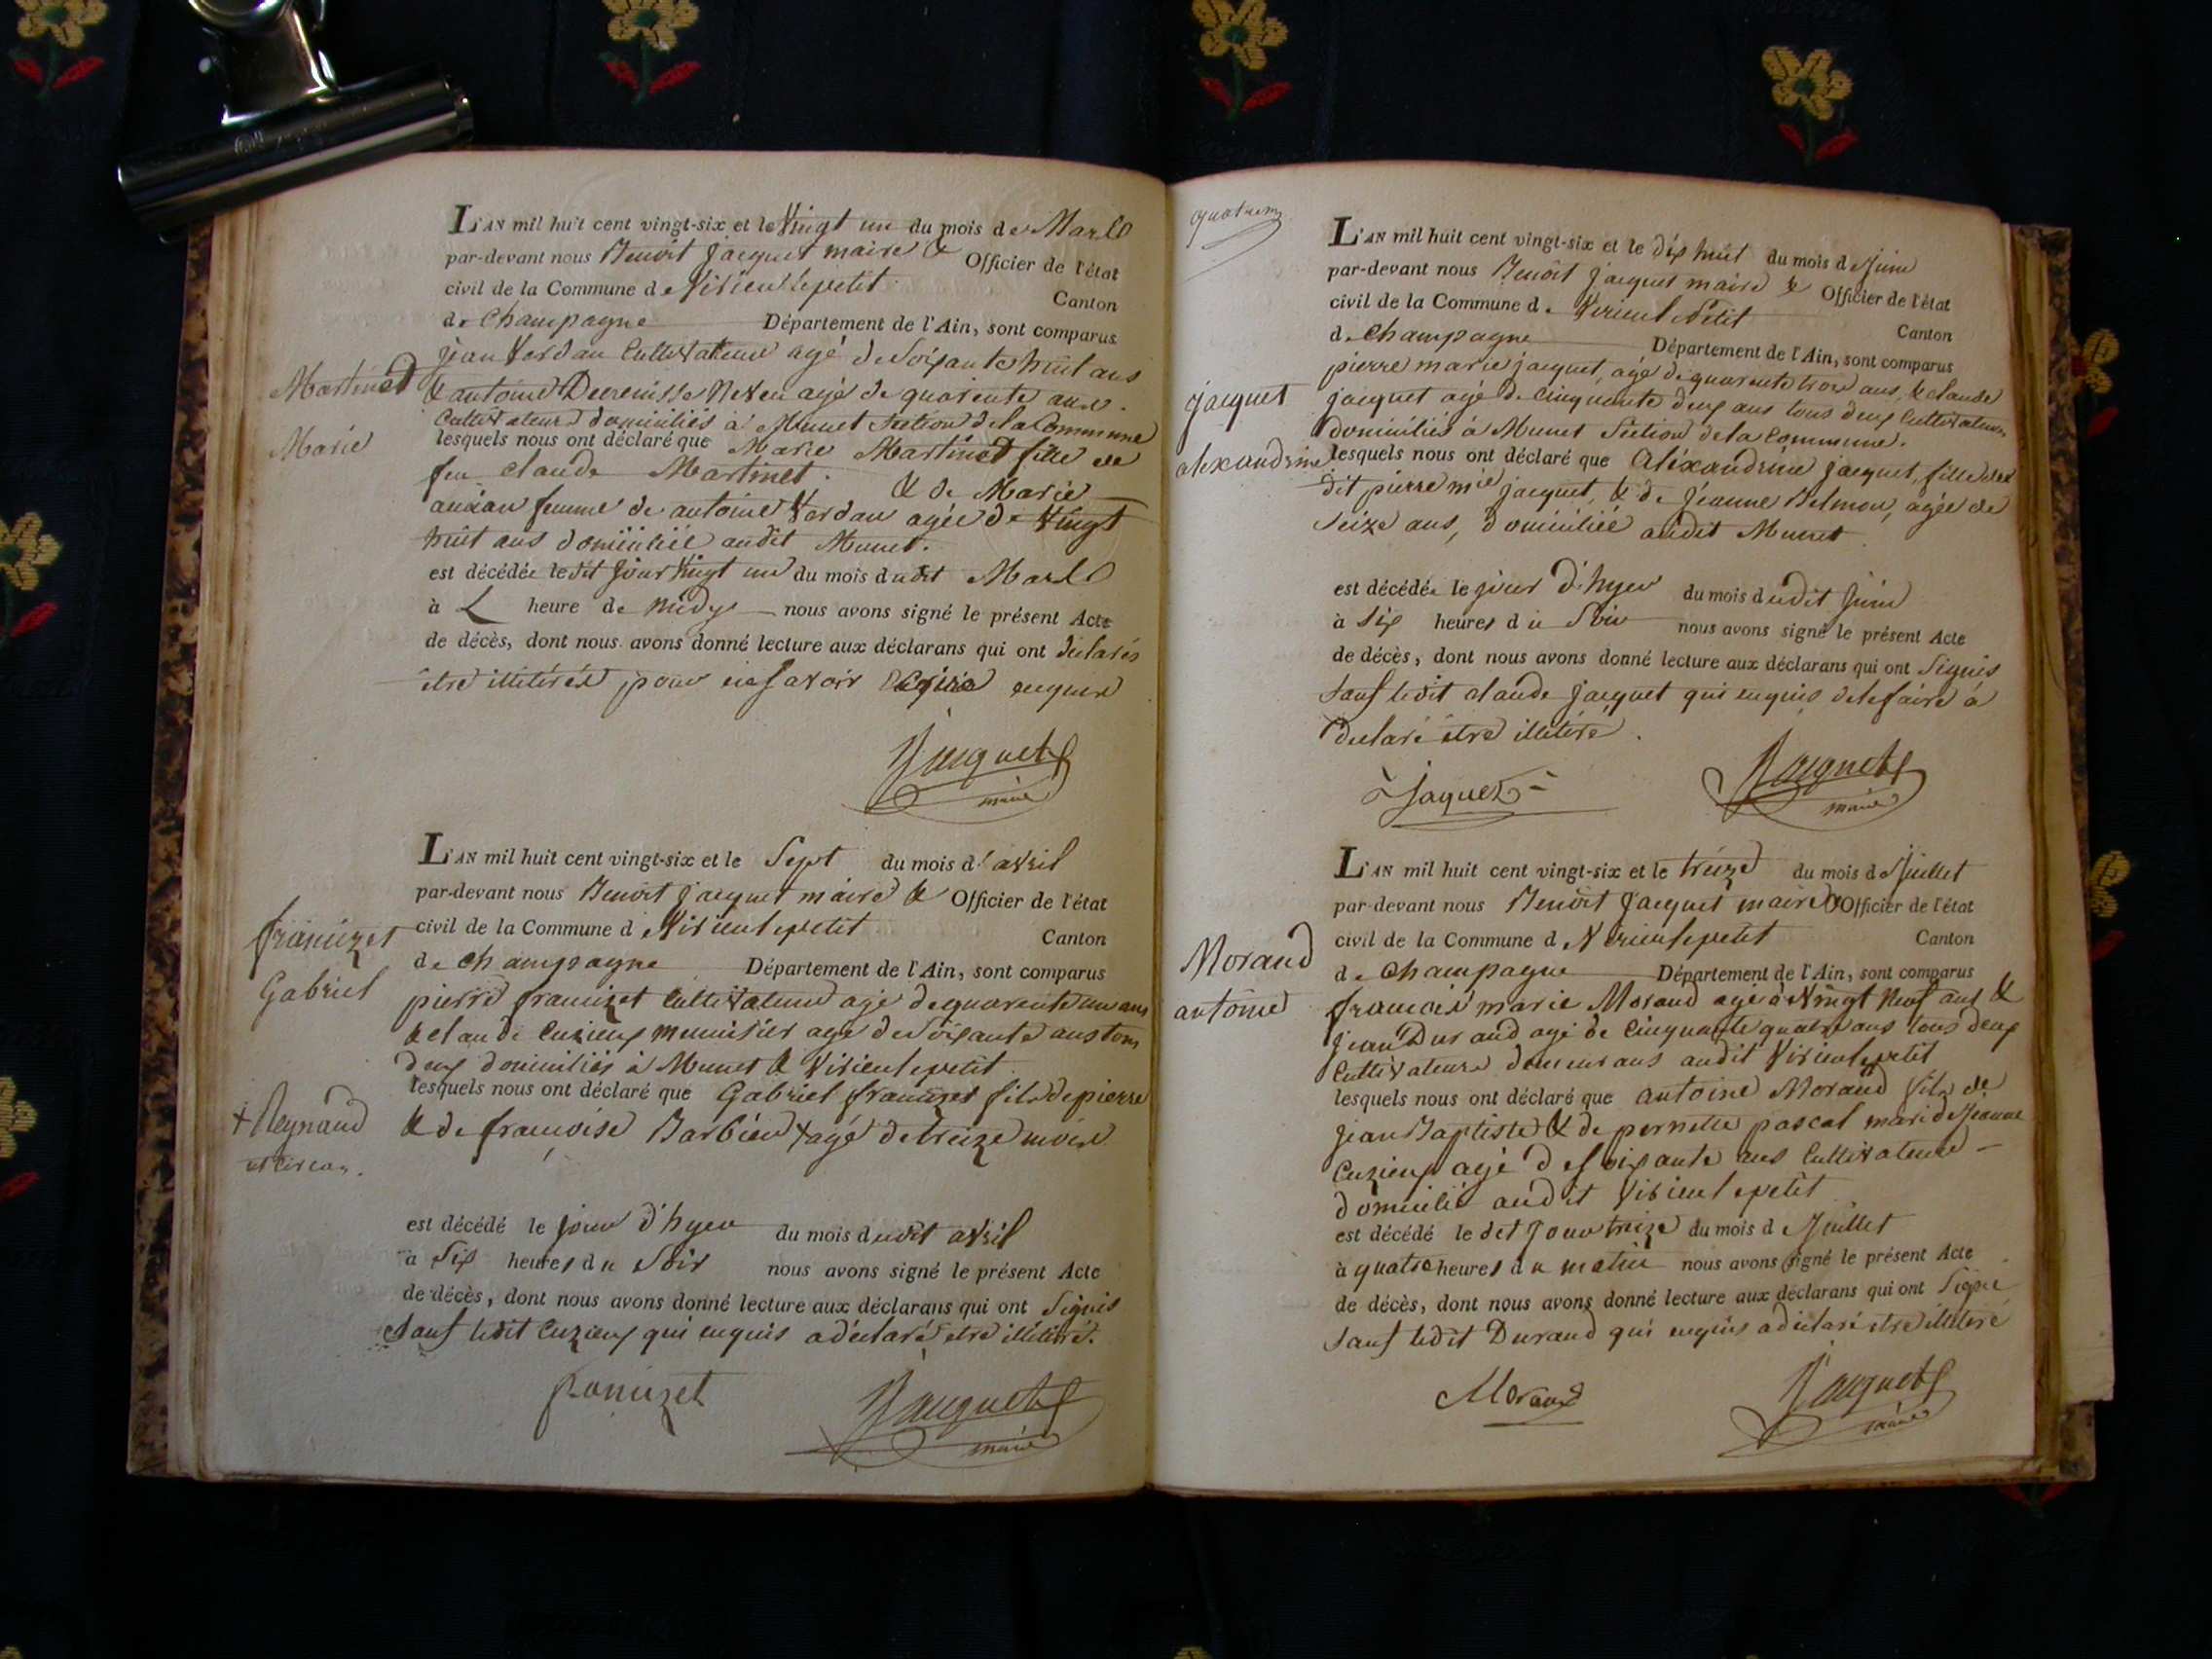 L'AN mil huit cent vingt-six et le Vingt un du mois de Mars
par-devant nous Benoit jacquet maire & Officier de l'état
civil de la Commune de Virieu le petit Canton
de Champagne Département de l'Ain, sont comparus
jean Vardau Cultivateur agé de Soixante huit ans
Martinet
& antoine neveu agé de quarente ans
Cultivateurs domiciliés à Munet Section de la Commune
Marie
lesquels nous ont déclaré que Marie Martinet fille de
feu claude Martinet. & de Marie
femme de antoine Vardau agée de Vingt
huit ans domiciliée audit Munet.
est décédée ledit jour Vingt un du mois dudit Mars
à L heure de midy nous avons signé le présent Acte
de décès, dont nous avons donné lecture aux déclarans qui ont déclarés
être illitérés pour enquis
Jacquet
maire
L'AN mil huit cent vingt-six et le Sept du mois d'avril
par-devant nous Benoit jacquet maire & Officier de l'état
civil de la Commune d Virieu le petit Canton
francizet
Gabriel
de Champagne Département de l'Ain, sont comparus
pierre francizet Cultivateur agé de quarente un ans
& claude Cuzieux menuisier agé de Soixante ans tous
deux domiciliés à Munet & Virieu le petit
lesquels nous ont déclaré que Gabriel francizet fils de pierre
& de françoise Barbier + agé de treize mois
+ Reynaud
est décédé le jour d'hyer du mois dudit avril
à Six heures du Soir nous avons signé le présent Acte
de décès, dont nous avons donné lecture aux déclarans qui ont Signés
Sauf ledit Cuzieux qui enquis a déclaré etre illitéré.
francizet
Jacquet
maire
L'AN mil huit cent vingt-six et le dix huit du mois de Juin
par-devant nous Benoit jacquet maire & Officier de l'état
civil de la Commune de Virieu le Petit Canton
de Champagne Département de l'Ain, sont comparus
pierre marie jacquet, agé de quarente trois ans, & claude
jacquet
jacquet agé de Cinquante deux ans tous deux Cultivateurs
domiciliés à Munet Section de la Commune.
alexandrine
lesquels nous ont déclaré que Aléxandrine jacquet, fille du
dit pierre mie jacquet, & de jeanne Belmon, agée de
Seize ans, domiciliée audit Munet
est décédée le jour d'hyer du mois dudit Juin
à Six heures du Soir nous avons signé le présent Acte
de décès, dont nous avons donné lecture aux déclarans qui ont Signés
Sauf ledit claude jacquet qui enquis de le faire à
déclaré être illitéré.
Jaquet
Jacquet
maire
L'AN mil huit cent vingt-six et le treize du mois de Juillet
par-devant nous Benoit Jacquet maire & Officier de l'état
civil de la Commune d Virieu le petit Canton
Morand
de Champagne Département de l'Ain, sont comparus
antoine
francois marie Morand agé de Vingt Neuf ans &
jean Durand agé de Cinquante quatre ans tous deux
Cultivateurs demeurans audit Virieu le petit
lesquels nous ont déclaré que antoine Morand fils de
jean Baptiste & de pernette pascal mari de Jeanne
Cuzieux agé de Soixante ans Cultivateur
domicilié audit Virieu le petit
est décédé le dit jour treize du mois de Juillet
à quatre heures du matin nous avons signé le présent Acte
de décès, dont nous avons donné lecture aux déclarans qui ont Signé
Sauf ledit Durand qui enquis a déclaré etre illitéré
Morand
Jacquet
maire